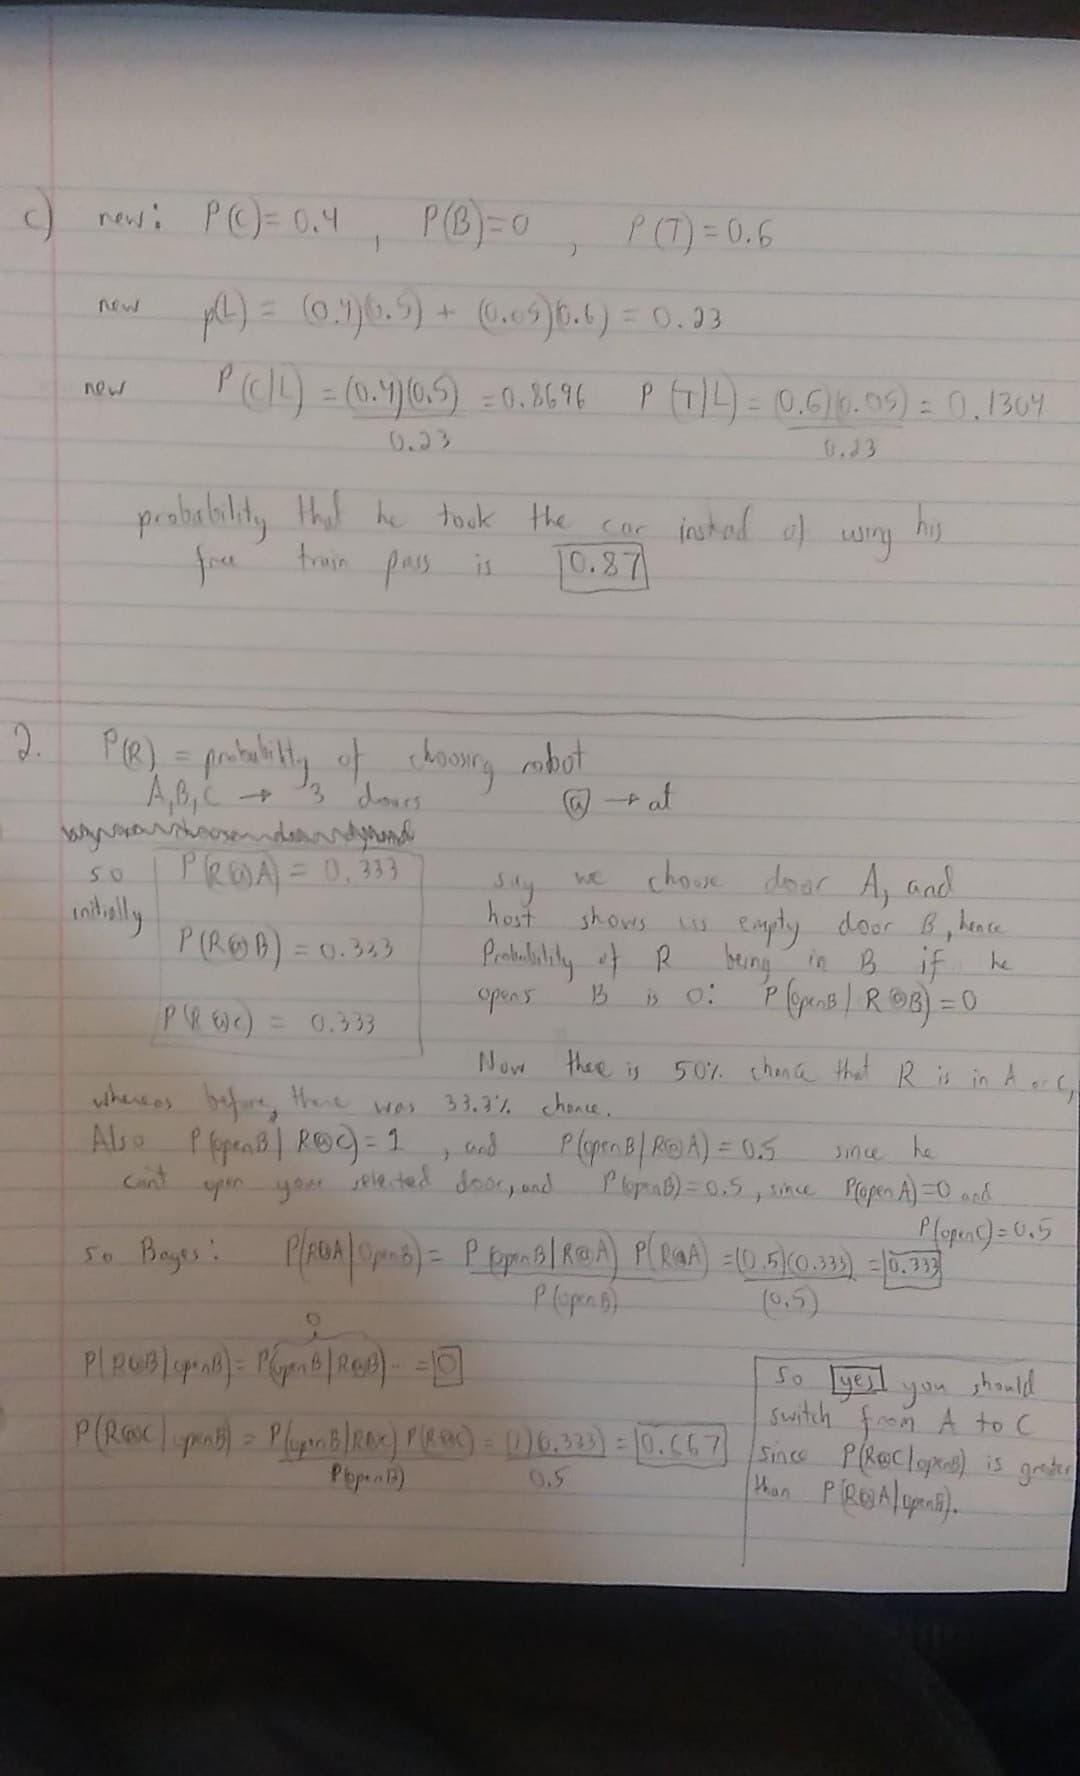 c) new: P(C)= 0.4 , P(B)=0 , P(T)=0.6
new p(L) = (0.4)(0.5) + (0.05)(0.6) = 0.23
new P(C|L) = (0.4)(0.5) = 0.8696 P(T|L) = (0.6)(0.05) = 0.1304
0.23 0.23
probability that he took the car instead of using his
free train pass is 0.87
2. P(R) = probability of choosing robot
A,B,C → 3 doors @ → at
so P(R@A) = 0.333 say we choose door A, and
initially host shows us empty door B, hence
P(R@B) = 0.333 Probability of R being in B if he
opens B is 0: P(openB | R@B) = 0
P(R@C) = 0.333
Now there is 50% chance that R is in A or C,
whereas before, there was 33.3% chance.
Also P(openB | R@C) = 1 , and P(openB | R@A) = 0.5 since he
can't open your selected door, and P(openB) = 0.5, since P(openA)=0 and
P(openC)=0.5
so Bayes: P(R@A | OpenB) = P(openB | R@A) P(R@A) = (0.5)(0.333) = 0.333
P(openB) (0.5)
0
P(R@B | openB) = P(openB | R@B).. = 0
P(R@C | openB) = P(openB | R@C) P(R@C) = (1)(0.333) = 0.667
P(openB) 0.5
so yes you should
switch from A to C
since P(R@C | openB) is greater
than P(R@A | openB).